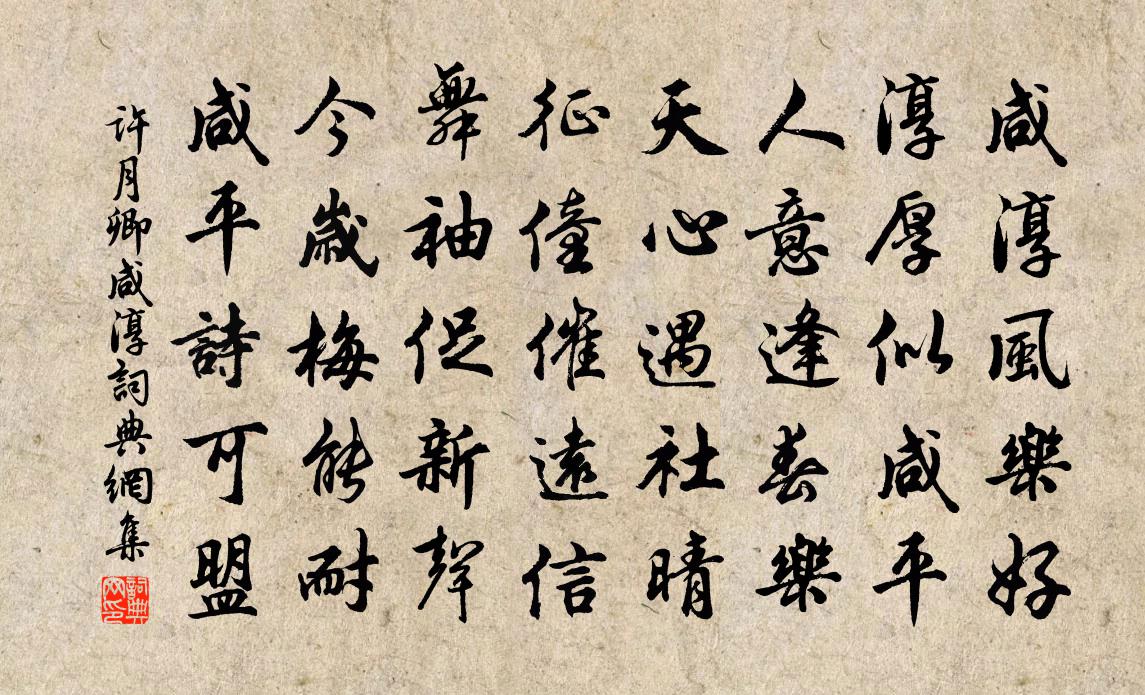 咸淳風樂好
淳厚似咸平
人意逢春樂
天心遇社晴
征僮催遠信
舞袖促新聲
今歲梅能耐
咸平詩可盟
許月卿咸淳詞典網集
詞典網印